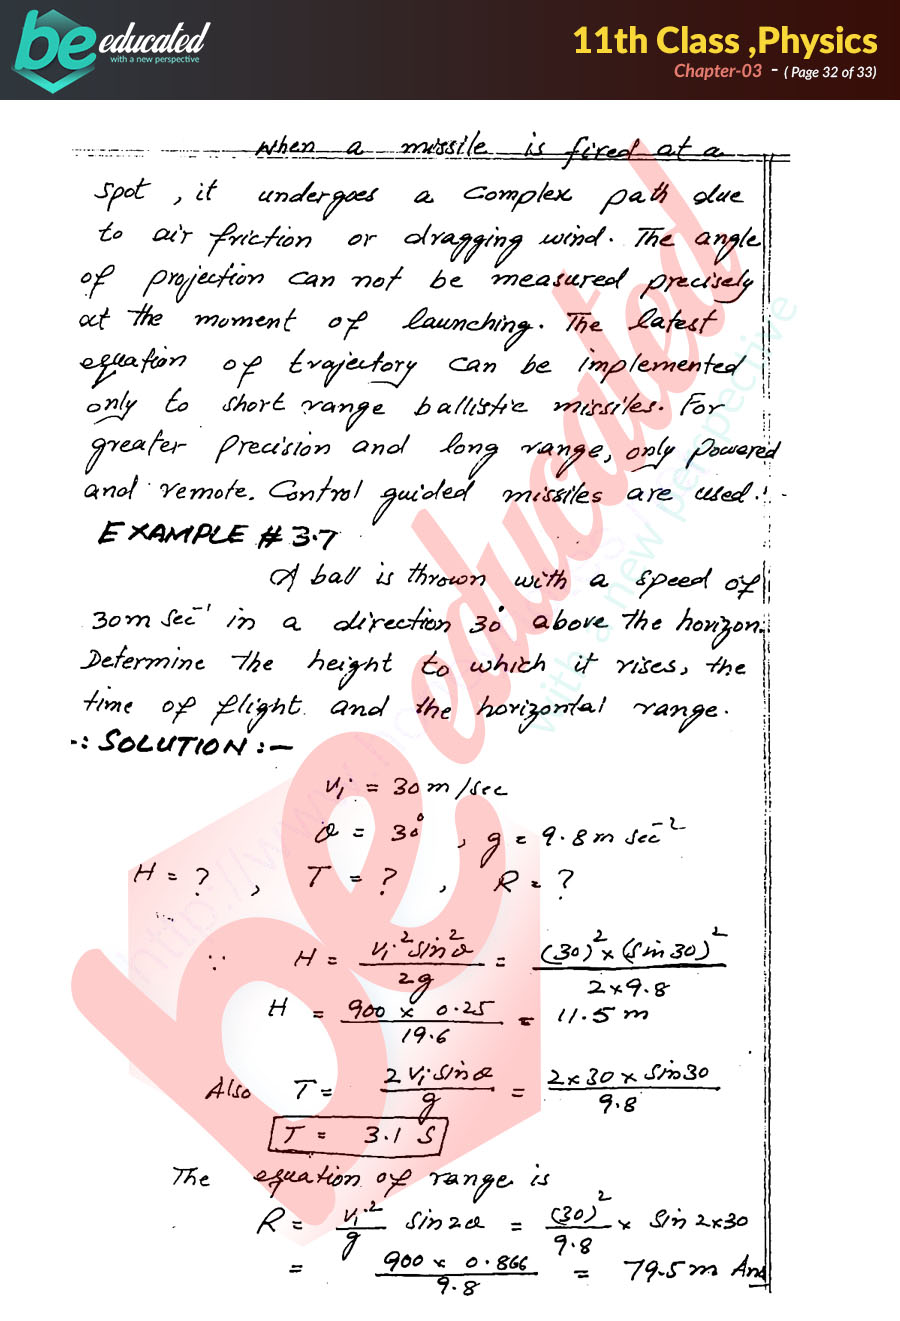 be educated
with a new perspective
11th Class ,Physics
Chapter-03 - ( Page 32 of 33)
When a missile is fired at a
spot, it undergoes a complex path due
to air friction or dragging wind. The angle
of projection can not be measured precisely
at the moment of launching. The latest
equation of trajectory can be implemented
only to short range ballistic missiles. For
greater precision and long range, only powered
and remote. Control guided missiles are used.
EXAMPLE # 3.7
A ball is thrown with a speed of
30m sec⁻¹ in a direction 30° above the horizon.
Determine the height to which it rises, the
time of flight and the horizontal range.
∴ SOLUTION :-
Vi = 30 m/sec
θ = 30° , g = 9.8 m sec⁻²
H = ? , T = ? , R = ?
∵ H = Vi² sin²θ / 2g = (30)² × (Sin 30)² / 2×9.8
H = 900 × 0.25 / 19.6 = 11.5 m
Also T = 2 Vi sinθ / g = 2×30 × Sin30 / 9.8
T = 3.1 S
The equation of range is
R = Vi² / g Sin2θ = (30)² / 9.8 × Sin 2×30
= 900 × 0.866 / 9.8 = 79.5 m Ans
be educated
with a new perspective